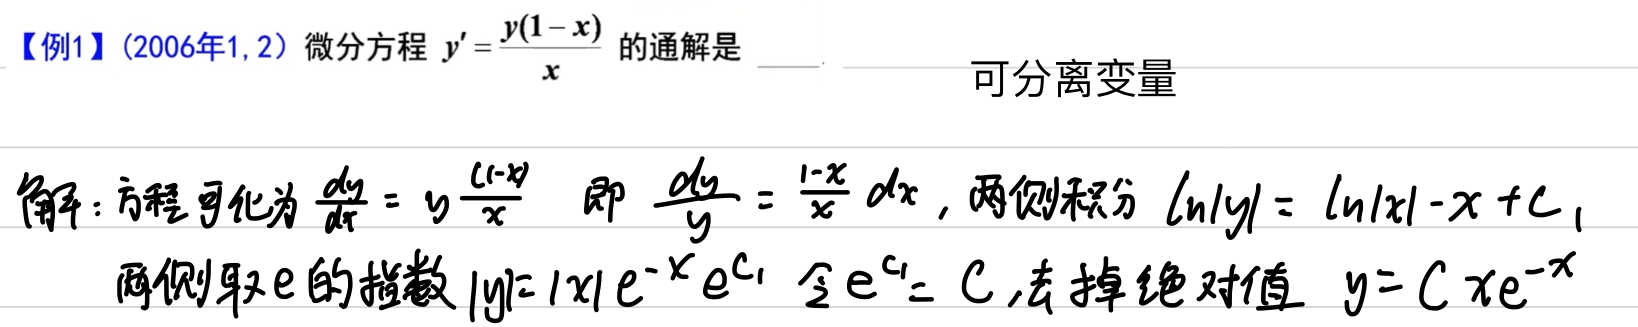 【例1】(2006年1,2) 微分方程 y′ = y(1−x)/x 的通解是 ____.
可分离变量
解: 方程可化为 dy/dx = y (1-x)/x 即 dy/y = (1-x)/x dx, 两侧积分 ln|y| = ln|x| - x + C₁
两侧取e的指数 |y| = |x| e^{-x} e^{C₁} 令 e^{C₁} = C, 去掉绝对值 y = C x e^{-x}